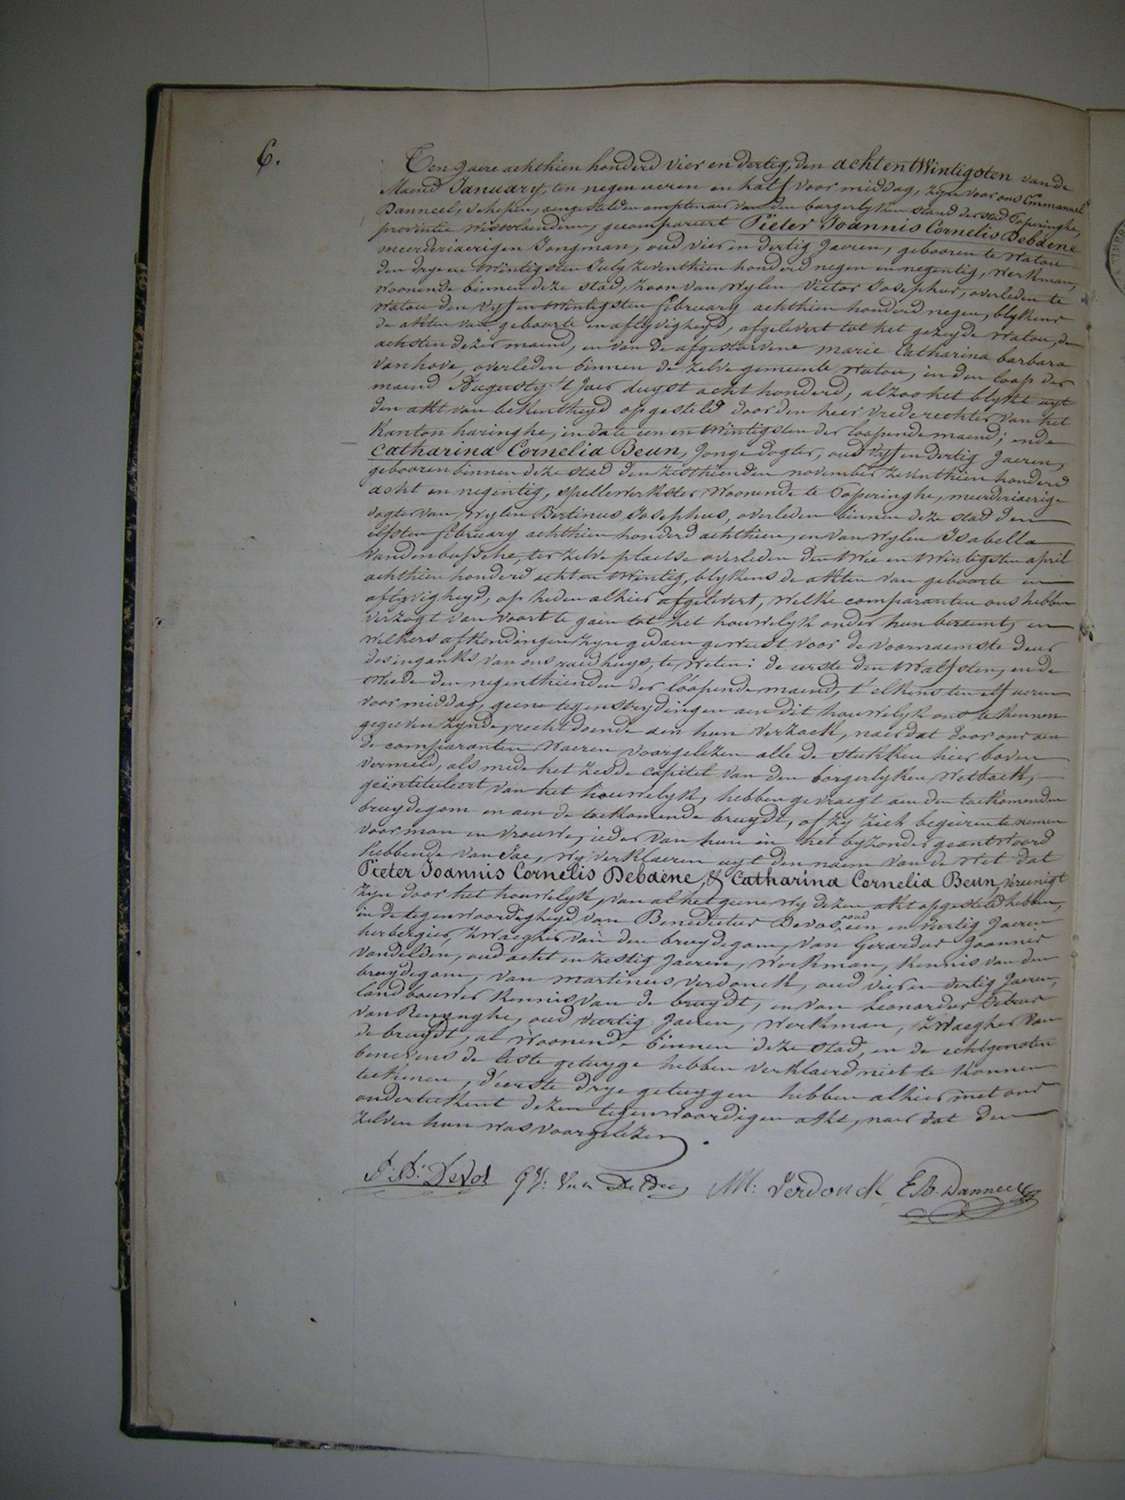 6.
Ten jaere achthien honderd vier en dertig, den achtentWintigsten van de
Maend January, ten negen ueren en half voor middag, zyn voor ons Emmanuel
Banneel, schepen, aengestelden amptenaer van den borgerlyken stand der stad Poperinghe,
provintie Westvlaenderen, gecompareert Pieter Joannis Cornelis Debaene
meerderjaerigen Jongman, oud vier en dertig Jaeren, gebooren te Watou
den drye en twintigsten July zeventhien honderd negen en negentig, Werkman,
woonende binnen deze stad, zoon van wylen Victor Josephus, overleden te
Watou den vyf en twintigsten february achthien honderd negen, blykens
de akten van geboorte en aflyvigheyd, afgelevert tot het gezeyde Watou, den
achsten dezer maend, en van de afgestorvene marie Catharina barbara
vanhove, overleden binnen de zelve gemeente watou, in den loop der
maend Augusty 't Jaer duyst acht honderd, alzoo het blykt uyt
den akt van bekentheyd opgesteld door den heer vrederechter van het
Kanton haringhe, in date een en twintigsten der loopende maend; ende
Catharina Cornelia Beun, Jonge dogter, oud vyf en dertig Jaeren,
gebooren binnen deze stad den zesthienden november zeventhien honderd
acht en negentig, spellewerkster, woonende te Poperinghe, meerderjaerige
dogter van wylen Bertinus Josephus, overleden binnen deze stad den
elfsten february achthien honderd achthien, en van wylen Isabella
Vandenbussche, ter zelve plaetse overleden den twee en twintigsten april
achthien honderd acht en twintig, blykens de akten van geboorte en
aflyvigheyd, op heden alhier afgelevert, welke comparanten ons hebben
verzogt van voort te gaen tot het houwelyk onder hun beraemt, en
welkers afkondingen zyn gedaen geweest voor de voornaemste deur
des inganks van ons raedhuys, te weten: de eerste den twalfsten, en de
tweede den negenthienden der loopende maend, t'elkens ten elf ueren
voor middag, geene tegenstrydingen aen dit houwelyk ons te kennen
gegeven zynde, rechtdoende aen hun verzoek, naer dat door ons aen
de comparanten waeren voorgelezen alle de stukken hier boven
vermeld, als mede het zesde capittel van den borgerlyken Wetboek,
geïntituleert van het houwelyk, hebben gevraegt aen den toekomenden
bruydegom en aen de toekomende bruydt, of zy zich begeiren te nemen
voor man en vrouwe, ieder van hun in het byzonder geantwoord
hebbende van Jae, wy verklaeren uyt den naem van de wet dat
Pieter Joannis Cornelis Debaene, & Catharina Cornelia Beun, vereenigt
zyn door het houwelyk, van al het geene wy dezen akt opgesteld hebben,
in de tegenwoordigheyd van Benedictus Devos, oud een en veertig Jaeren
herbergier, zwaegher van den bruydegom, van Gerardus Joannes
Vandelden, oud acht en zestig Jaeren, Werkman, kennis van den
bruydegom, van martinus verdonck, oud vier en dertig Jaeren,
landbouwer kennis van de bruydt, en van Leonardus Petrus
van Renynghe, oud veertig Jaeren, Werkman, zwaegher van
de bruydt, al woonende binnen deze stad, en de echtgenoten
benevens de leste getuyge hebben verklaerd niet te konnen
teekenen, d'eerste drye getuygen hebben alhier met ons
onderteekent dezen tegenwoordigen akt, naer dat den
zelven hun was voorgelezen.
P: B: Devos M: Verdonck E Banneel